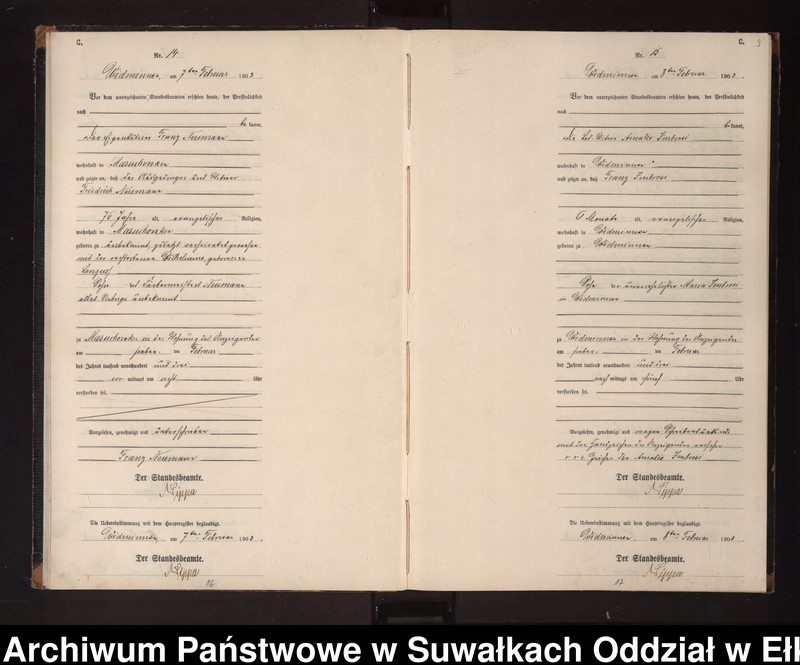 C.
Nr. 14
Widminnen, am 7ten Februar 1903.
Vor dem unterzeichneten Standesbeamten erschien heute, der Persönlichkeit
nach
be kannt,
der Eigenkäthner Franz Neumann
wohnhaft in Masuchowken
und zeigte an, daß der
Friedrich Neumann
76 Jahre alt, evangelischer Religion,
wohnhaft in Masuchowken
geboren zu unbekannt, zuletzt verheiratet gewesen
mit der verstorbenen Wilhelmine, geborenen
Sohn des Neumann
unbekannt
zu Masuchowken in der Wohnung des Anzeigenden
am sieben- ten Februar
des Jahres tausend neunhundert und drei
vor mittags um acht Uhr
verstorben sei.
Vorgelesen, genehmigt und unterschrieben
Franz Neumann
Der Standesbeamte.
Lippa
Die Uebereinstimmung mit dem Hauptregister beglaubigt.
Widminnen, am 7ten Februar 1903.
Der Standesbeamte.
Lippa
16
C.
3
Nr. 15
Widminnen am 8ten Februar 1903.
Vor dem unterzeichneten Standesbeamten erschien heute, der Persönlichkeit
nach
be kannt,
die Amalie Imbrosi
wohnhaft in Widminnen
und zeigte an, daß Franz Imbrosi
6 Monate alt, evangelischer Religion,
wohnhaft in Widminnen
geboren zu Widminnen
Sohn der unverehelichten Maria Imbrosi
in Widminnen
zu Widminnen in der Wohnung der Anzeigenden
am sieben- ten Februar
des Jahres tausend neunhundert und drei
nach mittags um fünf Uhr
verstorben sei.
Vorgelesen, genehmigt und wegen
mit dem Handzeichen der Anzeigenden versehen
+++ Zeichen der Amalie Imbrosi
Der Standesbeamte.
Lippa
Die Uebereinstimmung mit dem Hauptregister beglaubigt.
Widminnen am 8ten Februar 1903
Der Standesbeamte.
Lippa
17
Archiwum Państwowe w Suwałkach Oddział w Eł